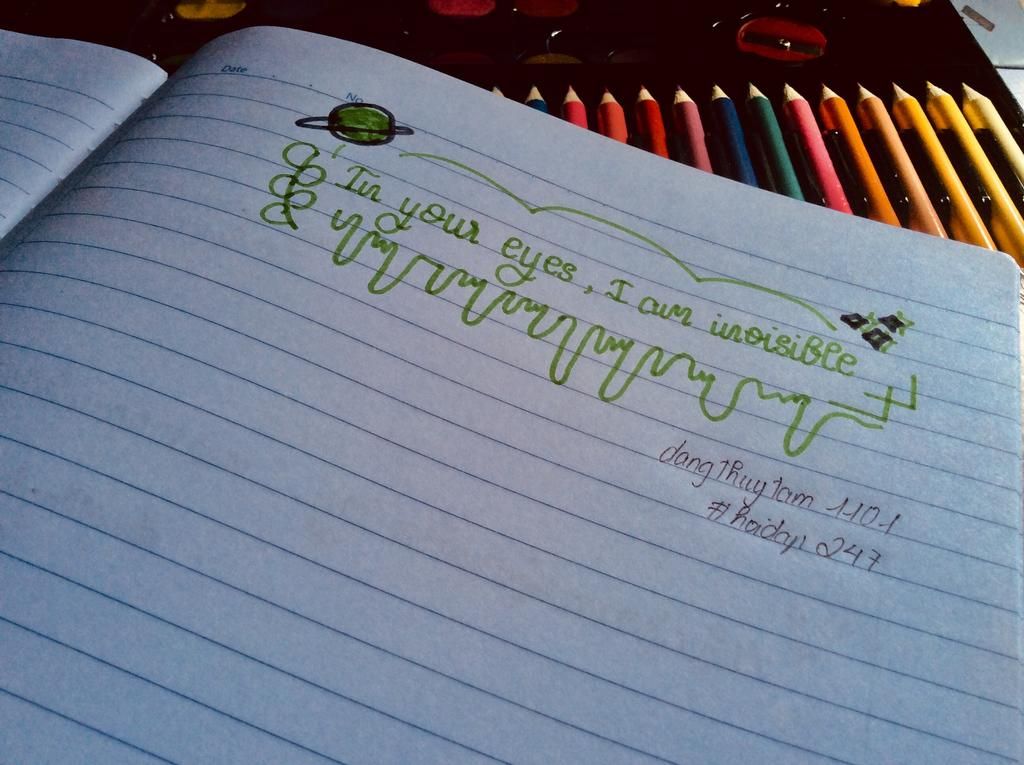 Date
No.
In your eyes, I am invisible
dangthuytam 1101
#hoidap 247